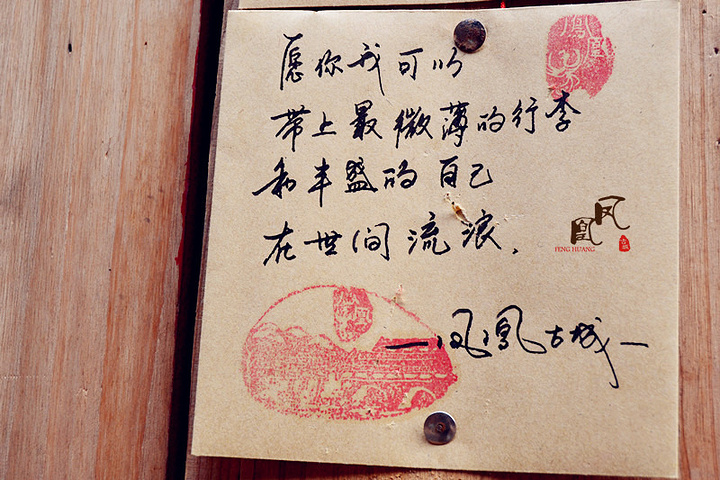 愿你我可以
带上最微薄的行李
和丰盛的自己
在世间流浪.
凤凰
FENG HUANG
—凤凰古城—